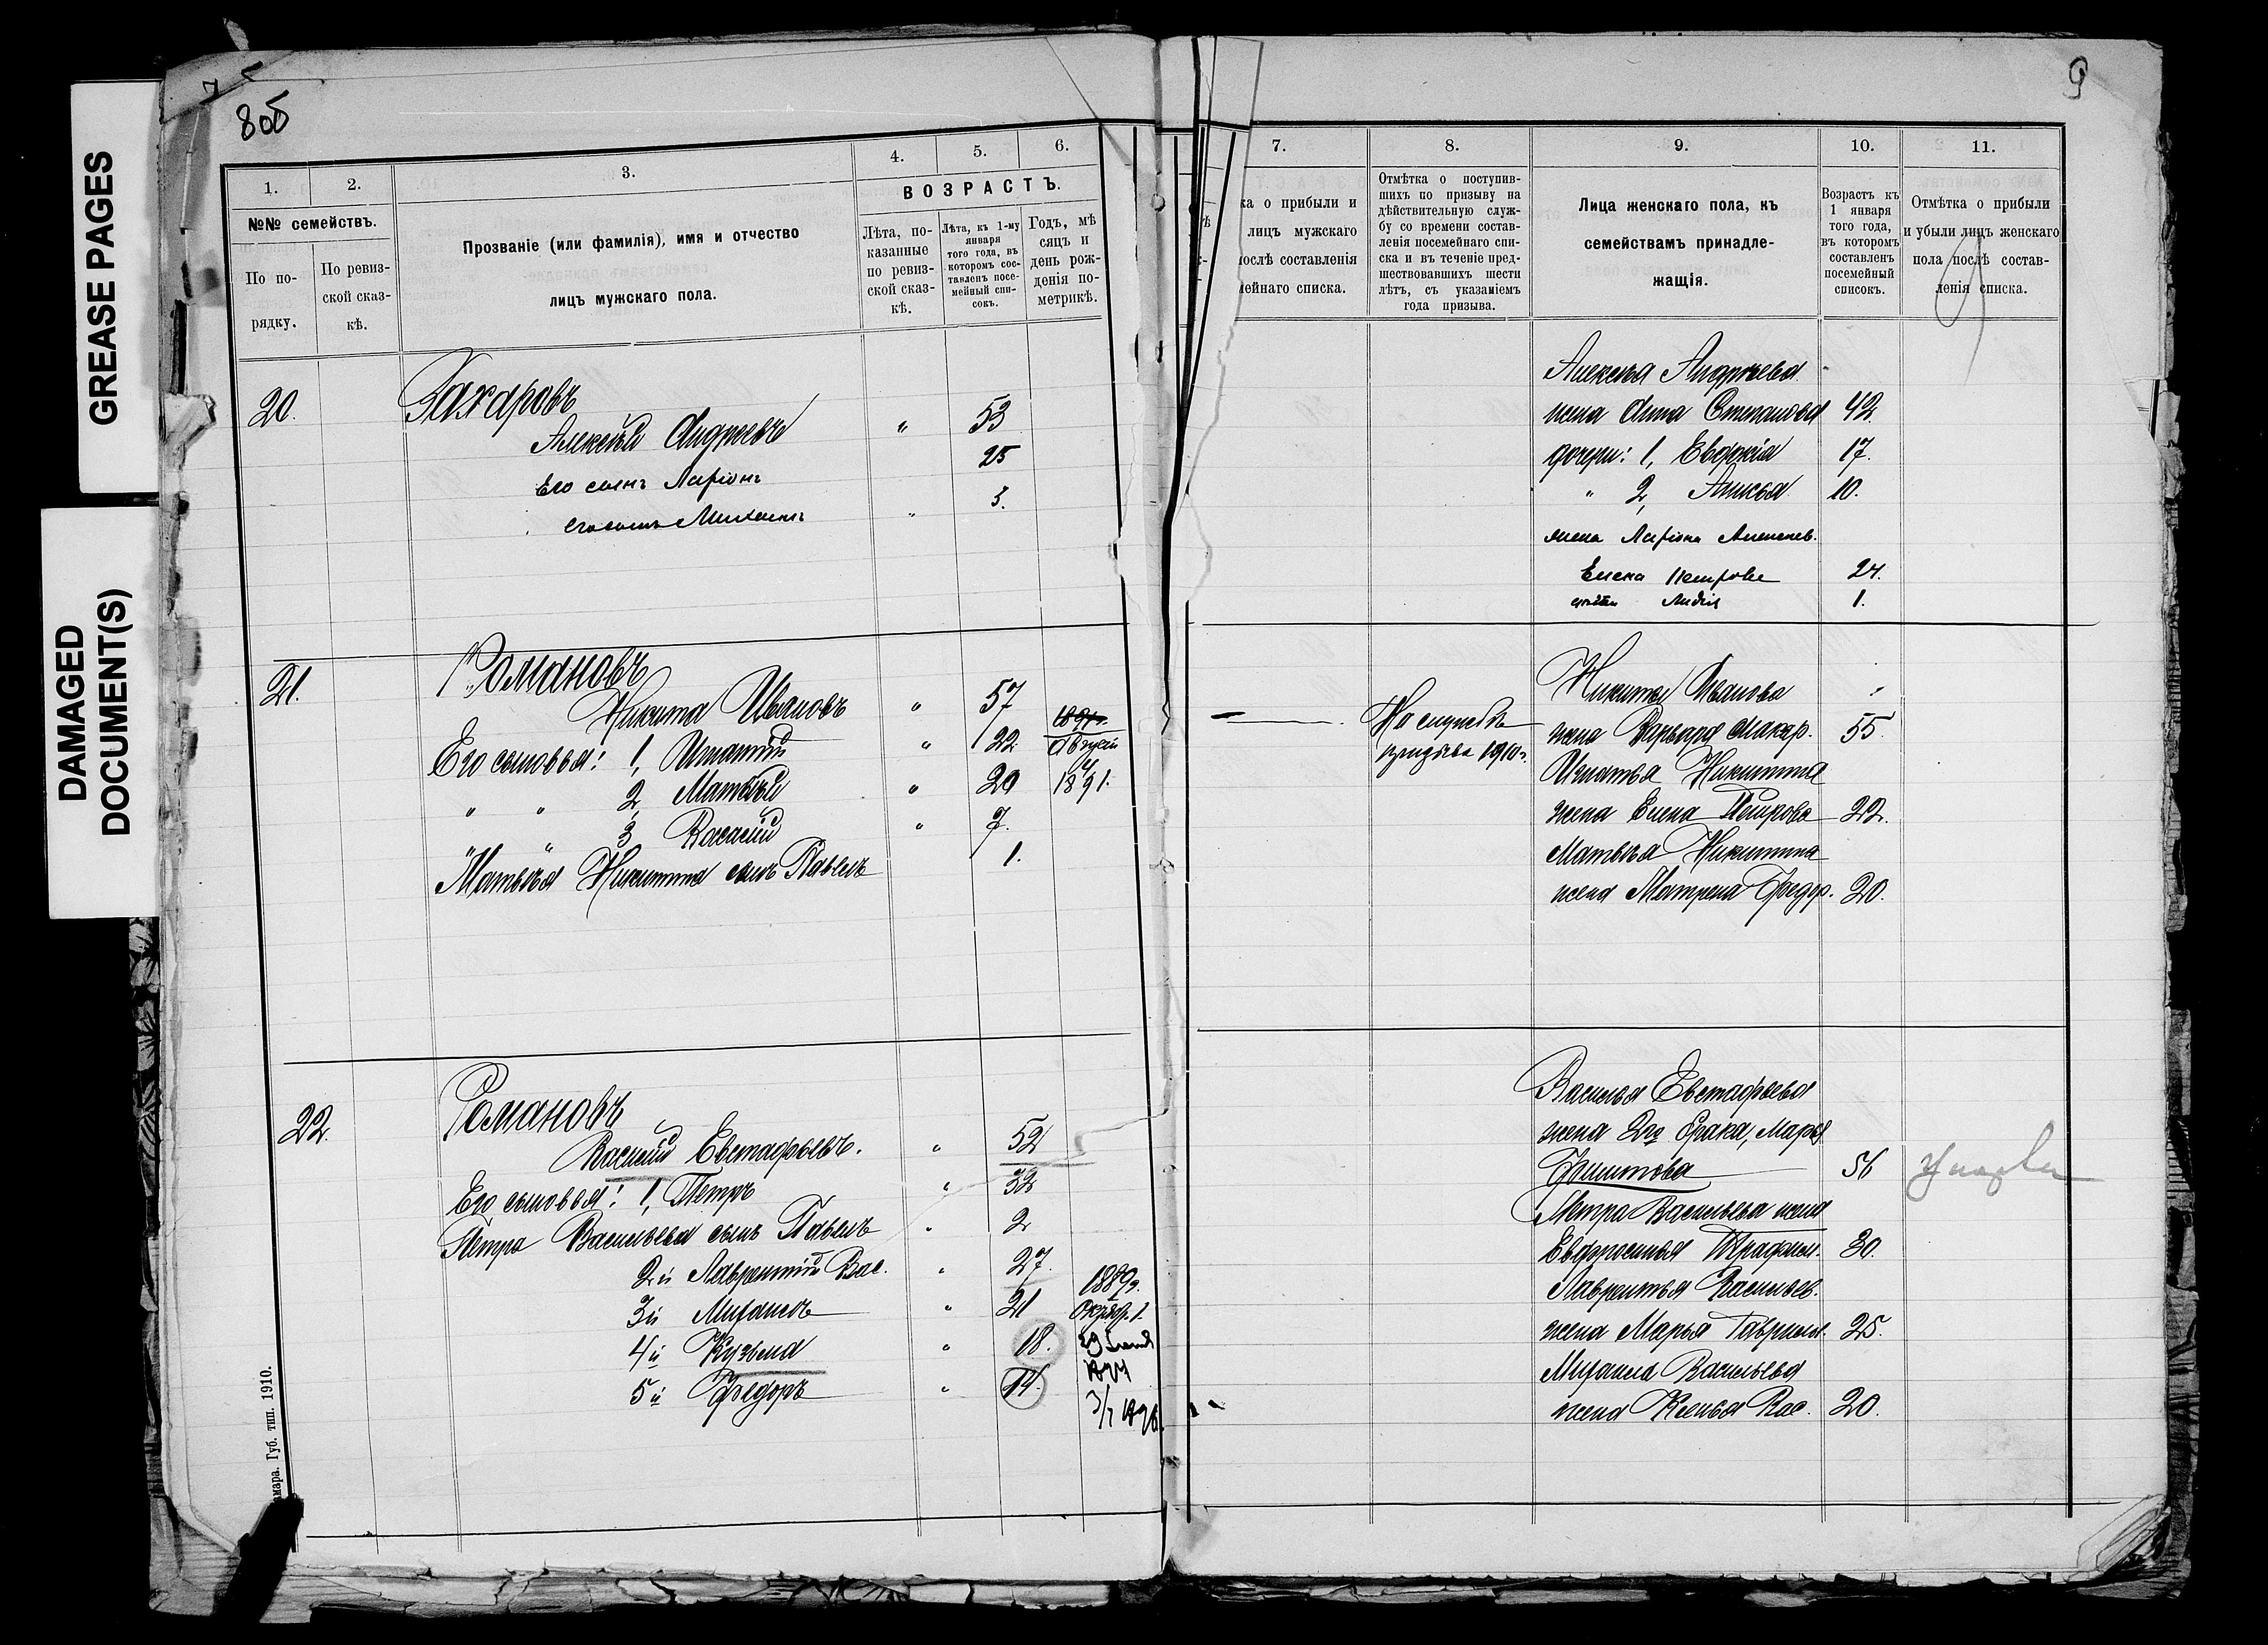 GREASE PAGES
DAMAGED
DOCUMENT(S)
8об
9
1.
2.
3.
4.
5.
6.
№№ семействъ.
По по-
рядку.
По ревиз-
ской сказ-
кѣ.
Прозваніе (или фамилія), имя и отчество
лицъ мужскаго пола.
ВОЗРАСТЪ.
Лѣта, по-
казанные
по ревиз-
ской сказ-
кѣ.
Лѣта, къ 1-му
января
того года, въ
которомъ сос-
тавленъ посе-
мейный спи-
сокъ.
Годъ, мѣ
сяцъ и
день рож-
денія по-
метрикѣ.
20.
Захаровъ
Алексѣй Андреевъ " 53
Его сынъ Ларіонъ 25
его сынъ Михаилъ " 3.
21.
Романовъ
Никита Ивановъ " 57
Его сыновья: 1, Игнатій " 22
" " 2, Матвѣй " 20 1891.
" " 3 Василій " 7.
Матвѣя Никитина сынъ Павелъ 1.
22.
Романовъ
Василій Евстафьевъ. " 52
Его сыновья: 1, Петръ " 32
Петра Васильева сынъ Павелъ " 2
2й Лаврентій Вас. " 27.
3й Михаилъ " 21 1889г.
Октяб. 1
4й Кузьма " 18.
5й Федоръ " 14.
Губ. тип. 1910.
7.
8.
9.
10.
11.
ка о прибыли и
лицъ мужскаго
послѣ составленія
мейнаго списка.
Отмѣтка о поступив-
шихъ по призыву на
дѣйствительную служ-
бу со времени состав-
ленія посемейнаго спи-
ска и въ теченіе пред-
шествовавшихъ шести
лѣтъ, съ указаніемъ
года призыва.
Лица женскаго пола, къ
семействамъ принадле-
жащія.
Возрастъ къ
1 января
того года,
въ которомъ
составленъ
посемейный
списокъ.
Отмѣтка о прибыли
и убыли лицъ женскаго
пола послѣ состав-
ленія списка.
Алексѣя Андреева
жена Анна Степанова 42.
дочери: 1, Евдокія 17.
" 2, Анисья 10.
жена Ларіона Алексеев.
Елена Петрова 24.
Лидія 1.
Никиты Иванова
жена Варвара Макар. 55.
На службѣ
призыва 1910г.
Игнатья Никитина
жена Елена Петрова 22.
Матвѣя Никитина
жена Матрена Федор. 20.
Василья Евстафьева
жена 2го брака, Марья
Филитова 56 умерла
Петра Васильева жена
Евфросинья Трафим. 30.
Лаврентья Васильев.
жена Марья Гаврилов. 25.
Михаила Васильева
жена Ксенья Вас. 20.